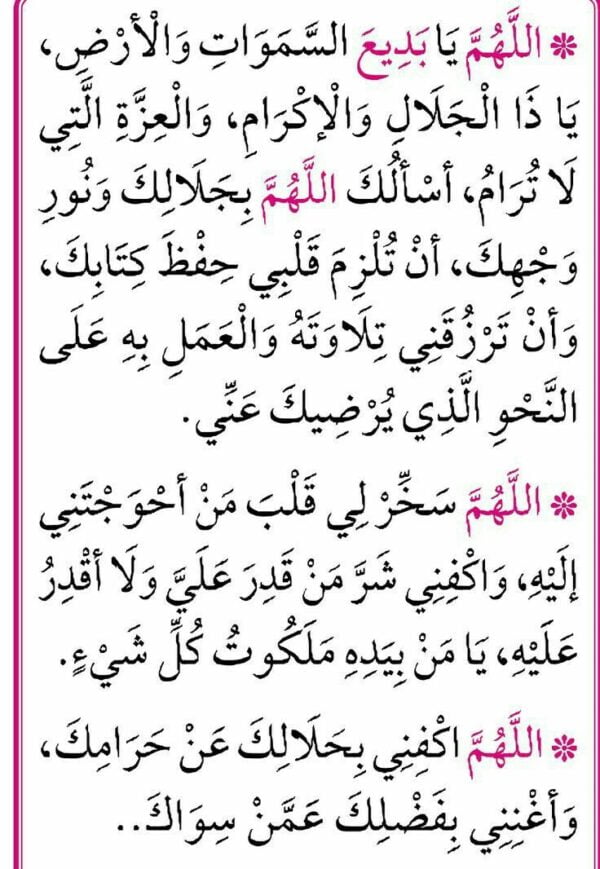 ❇ اللَّهُمَّ يَا بَدِيعَ السَّمَوَاتِ وَالْأَرْضِ،
يَا ذَا الْجَلَالِ وَالْإكْرَامِ، وَالْعِزَّةِ الَّتِي
لَا تُرَامُ، أسْألُكَ اللَّهُمَّ بِجَلَالِكَ وَنُورِ
وَجْهِكَ، أنْ تُلْزِمَ قَلْبِي حِفْظَ كِتَابِكَ،
وَأنْ تَرْزُقَنِي تِلَاوَتَهُ وَالْعَمَلِ بِهِ عَلَى
النَّحْوِ الَّذِي يُرْضِيكَ عَنِّي.
❇ اللَّهُمَّ سَخِّرْ لِي قَلْبَ مَنْ أحْوَجْتَنِي
إلَيْهِ، وَاكْفِنِي شَرَّ مَنْ قَدِرَ عَلَيَّ وَلَا أقْدِرُ
عَلَيْهِ، يَا مَنْ بِيَدِهِ مَلَكُوتُ كُلِّ شَيْءٍ.
❇ اللَّهُمَّ اكْفِنِي بِحَلَالِكَ عَنْ حَرَامِكَ،
وَأغْنِنِي بِفَضْلِكَ عَمَّنْ سِوَاكَ..